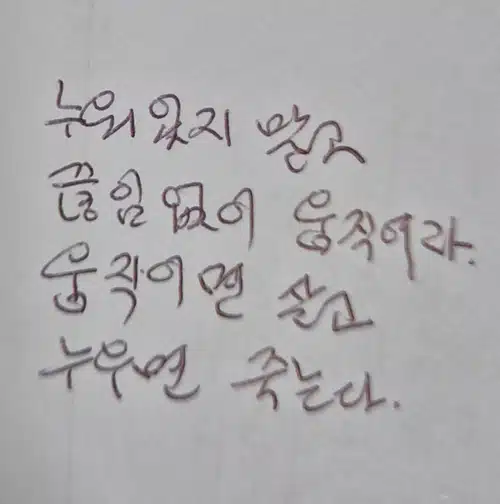 누워있지 말고
끊임없이 움직여라.
움직이면 살고
누우면 죽는다.